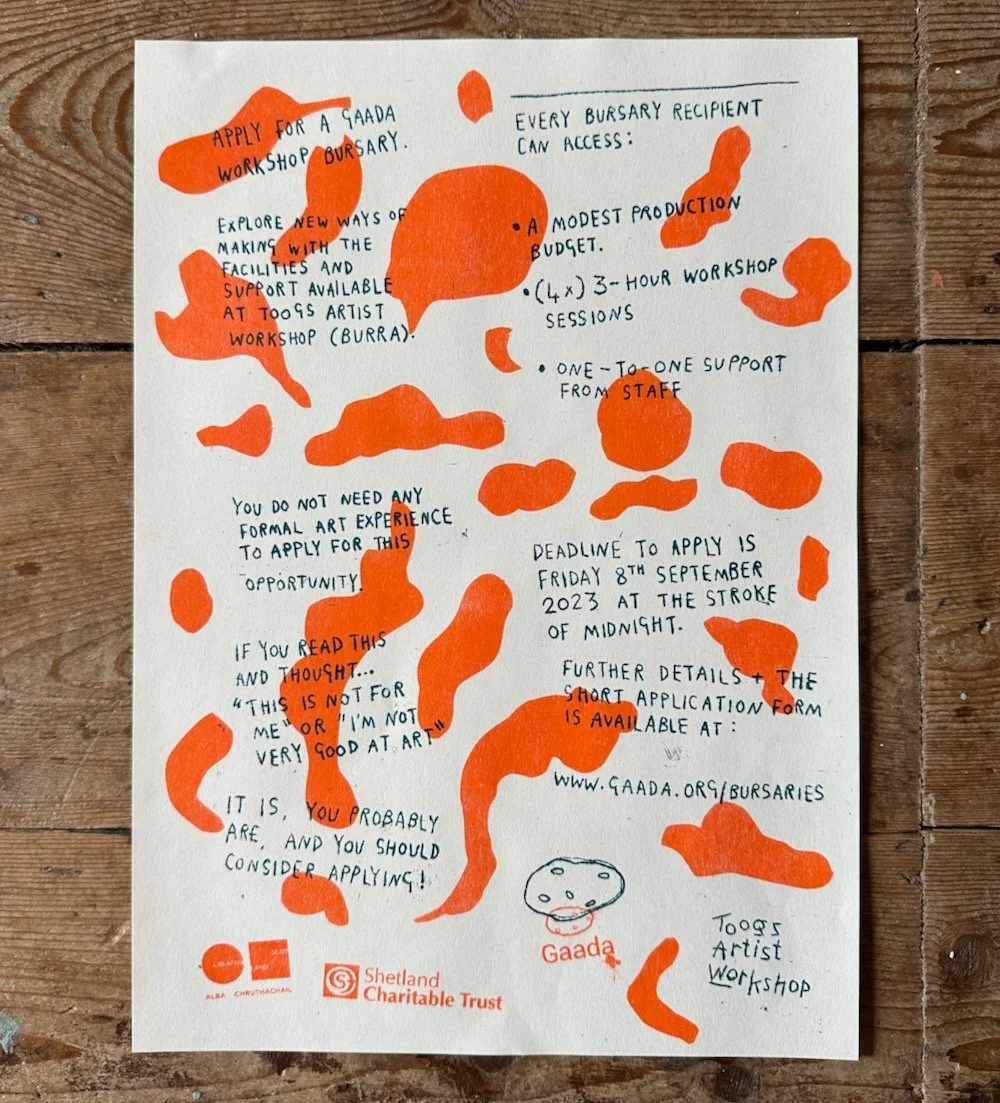 APPLY FOR A GAADA
WORKSHOP BURSARY.
EXPLORE NEW WAYS OF
MAKING WITH THE
FACILITIES AND
SUPPORT AVAILABLE
AT TOOGS ARTIST
WORKSHOP (BURRA).
YOU DO NOT NEED ANY
FORMAL ART EXPERIENCE
TO APPLY FOR THIS
OPPORTUNITY.
IF YOU READ THIS
AND THOUGHT...
"THIS IS NOT FOR
ME" OR "I'M NOT
VERY GOOD AT ART"
IT IS, YOU PROBABLY
ARE, AND YOU SHOULD
CONSIDER APPLYING!
EVERY BURSARY RECIPIENT
CAN ACCESS:
• A MODEST PRODUCTION
BUDGET.
• (4x) 3-HOUR WORKSHOP
SESSIONS
• ONE-TO-ONE SUPPORT
FROM STAFF
DEADLINE TO APPLY IS
FRIDAY 8TH SEPTEMBER
2023 AT THE STROKE
OF MIDNIGHT.
FURTHER DETAILS + THE
SHORT APPLICATION FORM
IS AVAILABLE AT:
WWW.GAADA.ORG/BURSARIES
ALBA CHRUTHACHAIL
Shetland
Charitable Trust
Gaada
Toogs
Artist
Workshop